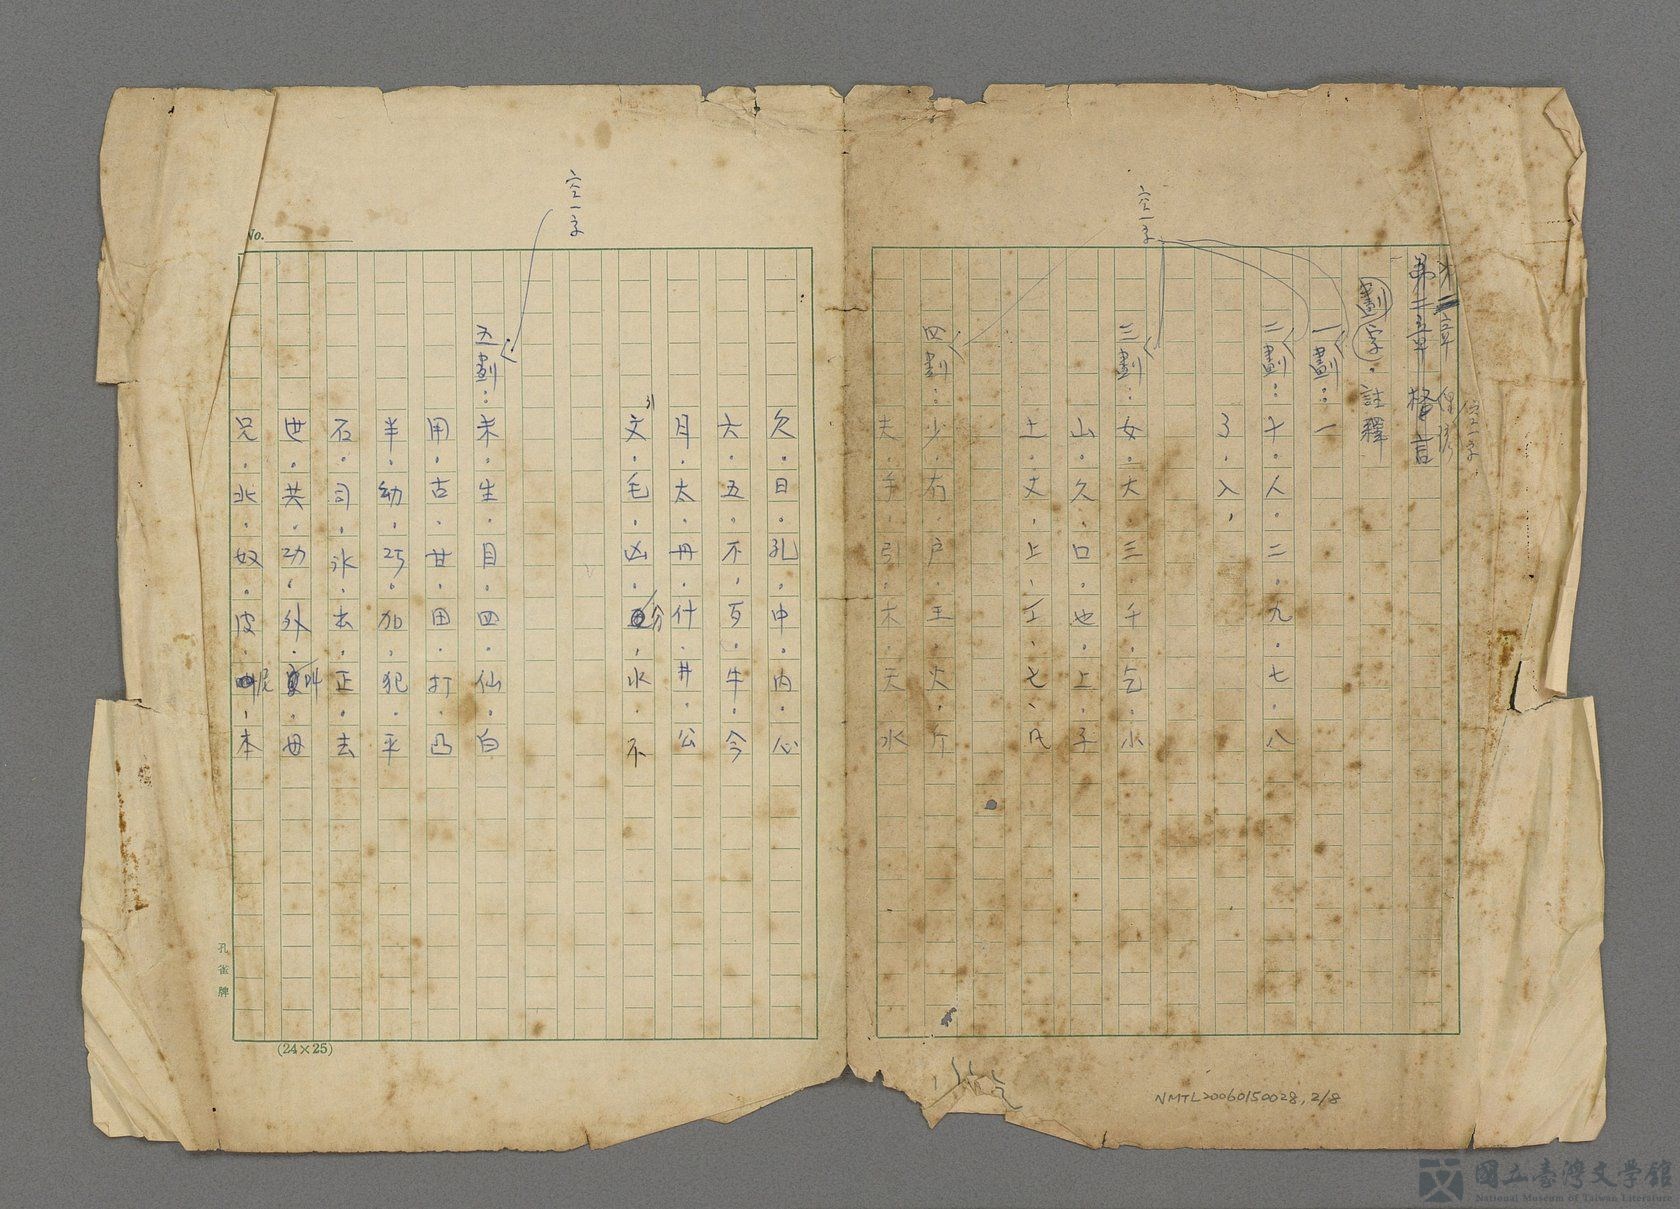 空一字
第一章 俚諺
空一字
第二章 格言
劃字·註釋
一劃：一
二劃：十·人·二·九·七·八
了·入·
三劃：女·大·三·千·乞·小
山·久·口·也·上·子
土·丈·上·工·七·凡
四劃：少·冇·戶·王·火·斤
夫·手·引·犬·天·水
欠·日·孔·中·內·心
六·五·不·歹·牛·今
月·太·丹·什·井·公
文·毛·凶·分·水·不
引
空一字
五劃：未·生·目·四·仙·白
用·古·甘·田·打·凸
半·幼·巧·加·犯·平
石·司·氷·去·正·去
世·共·功·外·叫·母
兄·北·奴·皮·尼·本
No.
孔雀牌
(24×25)
NMTL20060150028, 2/8
國立臺灣文學館
National Museum of Taiwan Literature